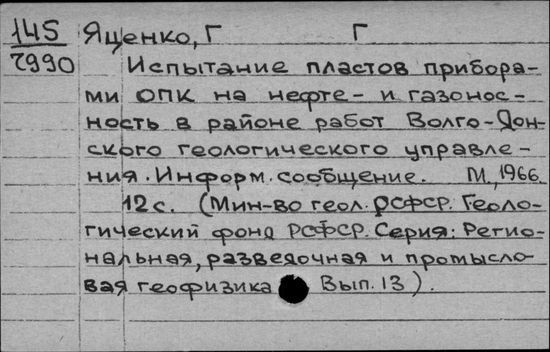 145 Яценко, Г Г
2990 Испытание пластов прибора-
ми ОПК на нефте- и газонос-
ность в районе работ Волго-Дон-
ского геологического управле-
ния. Информ. сообщение. М., 1966.
12с. (Мин-во геол. РСФСР. Геоло-
гический фонд РСФСР. Серия: Регио-
нальная, разведочная и промысло-
вая геофизика Вып. 13).